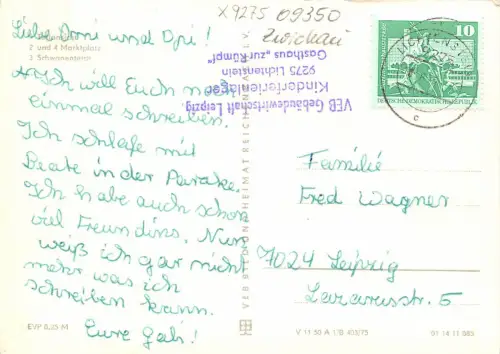 X9275 09350
Zwickau
Liebe Omi und Opi!
2 und 4 Marktplatz
3 Schwanenteich
Ich will Euch noch
einmal schreiben.
Ich schlafe mit
Beate in der Barake.
Ich habe auch schon
viel Freundins. Nun
weiß ich gar nicht
mehr was ich
schreiben kann.
Eure Gabi!
EVP 0,20 M
VEB Gebäudewirtschaft Leipzig
Kinderferienlager
9275 Lichtenstein
Gasthaus „zur Kümpf"
VEB BILD UND HEIMAT REICHENBACH I. V.
10
DEUTSCHE DEMOKRATISCHE REPUBLIK
LICHTENST
c
Familie
Fred Wagner
7024 Leipzig
Lazarusstr. 5
V 11 50 A 1/B 403/75
01 14 11 085